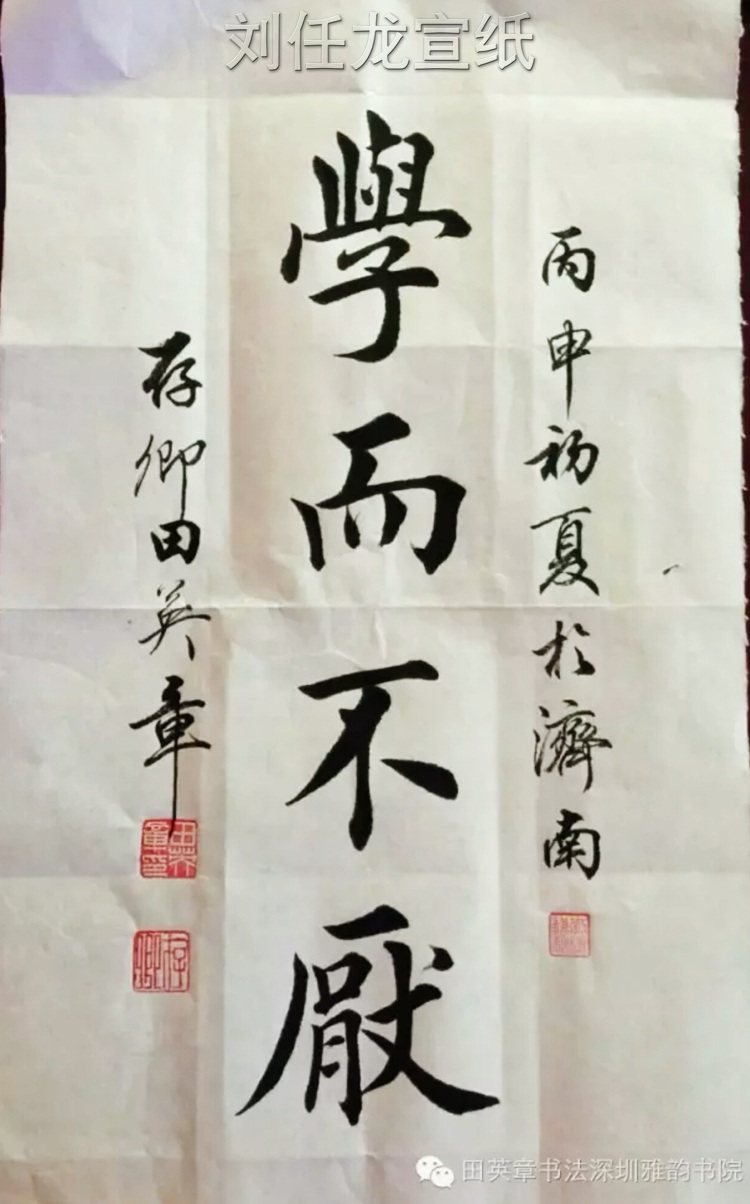 刘任龙宣纸
丙申初夏於濟南
學而不厭
存卿田英章
田英章印
存卿
田英章书法深圳雅韵书院